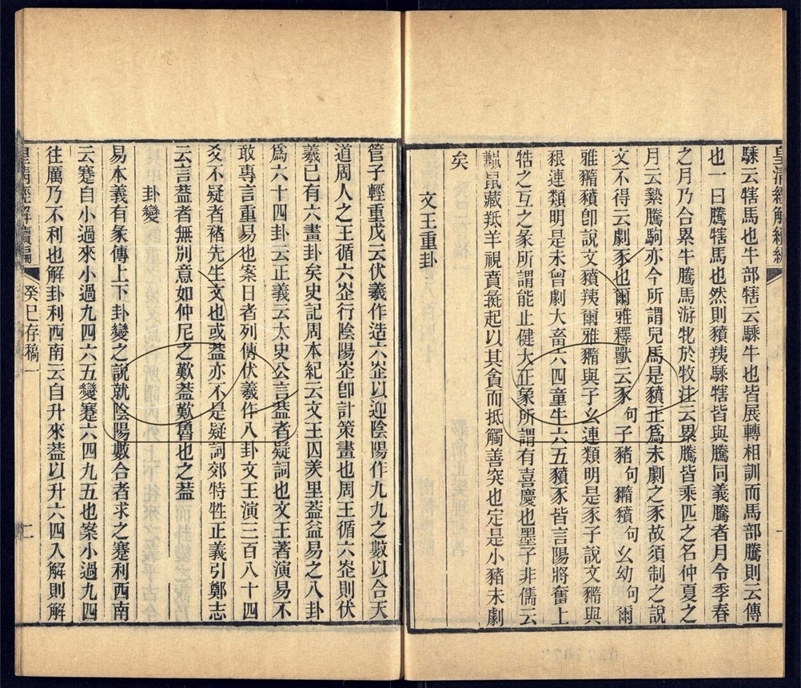 騬云犗馬也牛部犗云騬牛也皆展轉相訓而馬部騰則云傳
也一曰騰犗馬也然則豶羠騬犗皆與騰同義騰者月令季春
之月乃合累牛騰馬游牝於牧注云累騰皆乘匹之名仲夏之
月云縶騰駒亦今所謂兒馬是豶正爲未劇之豕故須制之說
文不得云劇豕也爾雅釋獸云豕句子豬句豶句幺幼句爾
雅豶卽說文豶羠爾雅與子幺連類明是豕子說文與
豤連類明是未曾劇大畜六四童牛六五豶豕皆言陽將奮上
牿之互之彖所謂能止健大正象所謂有喜慶也墨子非儒云
鼠藏羝羊視賁彘起以其貪而抵觸善突也定是小豬未劇
矣
文王重卦
管子輕重戊云伏羲作造六峜以迎陰陽作九九之數以合天
道周人之王循六峜行陰陽峜卽計策畫也周王循六峜則伏
羲已有六畫卦矣史記周本紀云文王囚羑里蓋益易之八卦
爲六十四卦云正義云太史公言蓋者疑詞也文王著演易不
敢專言重易也案日者列傳伏羲作八卦文王演三百八十四
爻不疑者褚先生文也或蓋亦不是疑詞郊特牲正義引鄭志
云言蓋者無別意如仲尼之歎蓋歎魯也之蓋
卦變
易本義有彖傳上下卦變之說就陰陽數合者求之蹇利西南
云蹇自小過來小過九四六五變蹇六四九五也案小過九四
往厲乃不利也解卦利西南云自升來蓋以升六四入解則解
皇清經解續編
癸巳存稿一
二
皇清經解續編